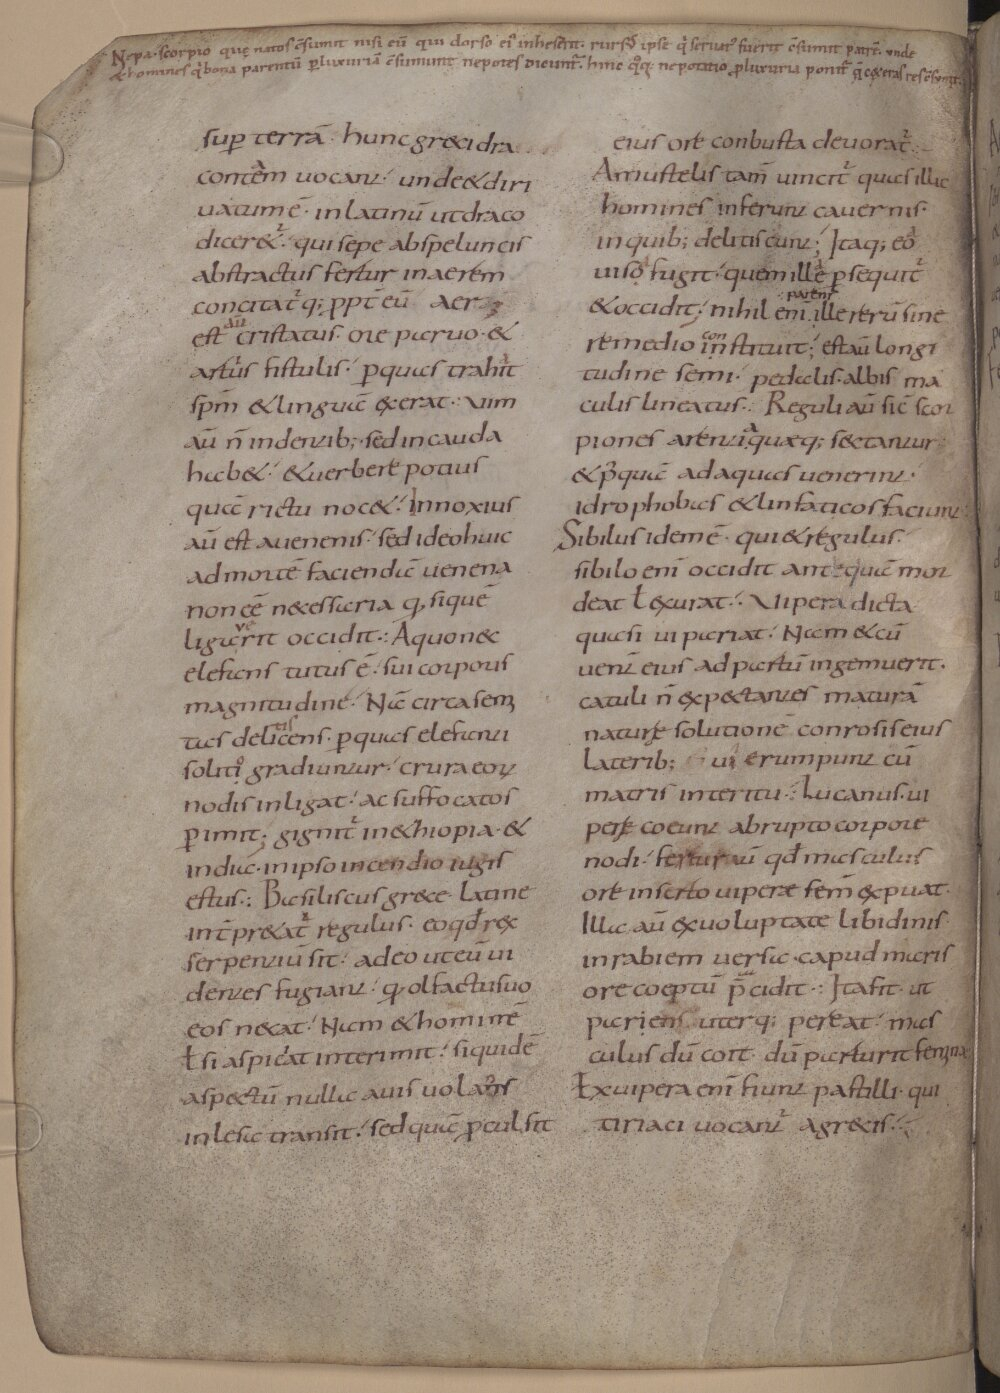 Nepa · scorpio quę natos c̄sumit nisi eū qui dorso ei᾽ inheserit · rursū ipse q̓ seruat᾽ fuerit c̄sumit patrē · unde
& homines q̓ bona parentū ꝑ luxuriā c̄sumunt nepotes dicunt᾽ · hinc qͦq; nepotatio ꝑ luxuria ponit᾽
suꝑ terrā · hunc greci dra
contēm uocant · unde & diri
uatum ē · in latinū ut draco
diceret᾽ · qui sepe ab speluncis
abstractus fertur in aerem
concitat᾽ q; ꝓpt̄ eū aer
est aū cristatus · ore paruo · &
artus fistulis · ꝑ quas trahit
sp̄m & linguā exerat · Uim
aū n̄ in dentib; · sed in cauda
habet · & uerbere potius
quā rictu nocet · Innoxius
aū est auenenis · sed ideo huic
ad mortē faciendā uenena
non eē necessaria q, si quē
ligauerit occidit · : A quo nec
elefans tutus ē · sui corporis
magnitudine · Nā circa semi
tas delitescens · ꝑ quas elefanti
soliti᾽ gradiuntur · crura eoꝝ
nodis inligat · ac suffocatos
ꝑimit ; gignit᾽ in ethiopia · &
india · in ipso incendio iugis
estus · : Basiliscus grece · Latine
int̄pretat᾽ regulus · eo qđ rex
serpentiū sit · adeo ut eū ui
dentes fugiant · q, olfactu suo
eos necat · Nam & hominē
ł si aspiciat interimit · siquidē
aspectū nulla auis uolans
inlesa transit · sed quā ꝓcul sit
eius ore conbusta deuorat᾽ ·
A mustelis tam̄ uincit᾽ quas illic
homines inferunt cauernis ·
in quib; delitiscunt ; Itaq; eo
uiso fugit · quem ille ꝑsequit᾽
& occidit ; nihil enī parens ille rerū sine
remedio in con stituit ; est aū longi
tudine semi · pedalis · albis ma
culis lineatus · : Reguli aū sic̄ scor
piones arentia quæq; sectantur
& p̄quā ad aquas uenerint ·
idrophobas & linfaticos faciunt
Sibilus idem ē · qui & regulus ·
sibilo enī occidit antequā mor
deat ł exurat · : Uipera dicta
quasi ui pariat · Nam & cū
uent̄ eius ad partū ingemuerit ·
catuli n̄ expectantes maturā
nature solutionē conrosis eius
laterib; ui erumpunt cū
matris interitu · : Lucanus · ui
pere coeunt abrupto corpore
nodi · fertur aū qđ masculus
ore inserto uiperæ sem̄ expuat ·
Illa aū ex uoluptate libidinis
in rabiem uersa · capud maris
ore coeptū p̄cidit · : Ita fit ut
pariens uterq; pereat · mas
culus dū coit · dū parturit femina
Ex uipera enī fiunt pastilli · qui
tiriaci uocant᾽ a grecis ·